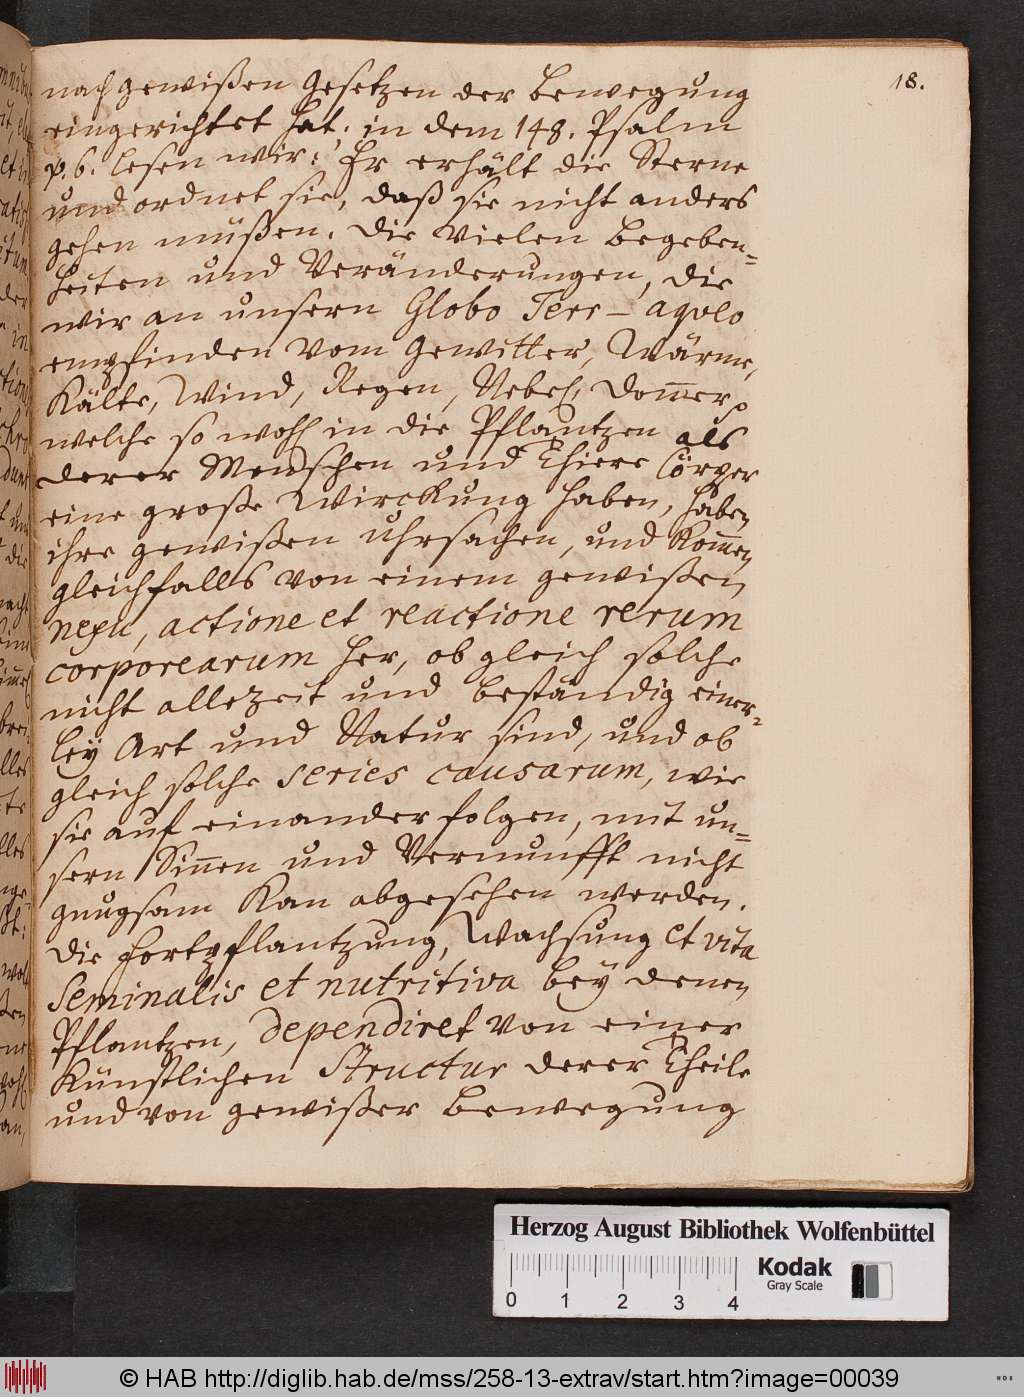 18.
nach gewißen Gesetzen der Bewegung
eingerichtet hat. in dem 148. Psalm
p. 6. lesen wir: Er erhält die Sterne
und ordnet sie, daß sie nicht anders
gehen müßen. Die Vielen Begeben=
heiten und Veränderungen, die
wir an unsern Globo Terr-aqveo
empfinden vom Gewitter, Wärme,
Kälte, Wind, Regen, Nebel, Doñer
welche so wohl in die Pflantzen als
derer Menschen und Thiere Cörper
eine große Wirckung haben, haben
ihre gewißen uhrsachen, und Kom̃en
gleichfalls von einem gewißen
nexu, actione et reactione rerum
corporearum her, ob gleich solche
nicht allezeit und beständig einer=
ley Art und Natur sind, und ob
gleich solche series causarum, wie
sie auf einander folgen, mit un=
sern Siñen und Vernunfft nicht
gnugsam Kan abgesehen werden.
Die Fortpflantzung, Wachsung et vita
Seminalis et nutritiva bey denen
Pflantzen, dependiret von einer
Künstlichen Structur derer Theile
und von gewißer Bewegung
Herzog August Bibliothek Wolfenbüttel
Kodak
Gray Scale
0 1 2 3 4
© HAB http://diglib.hab.de/mss/258-13-extrav/start.htm?image=00039